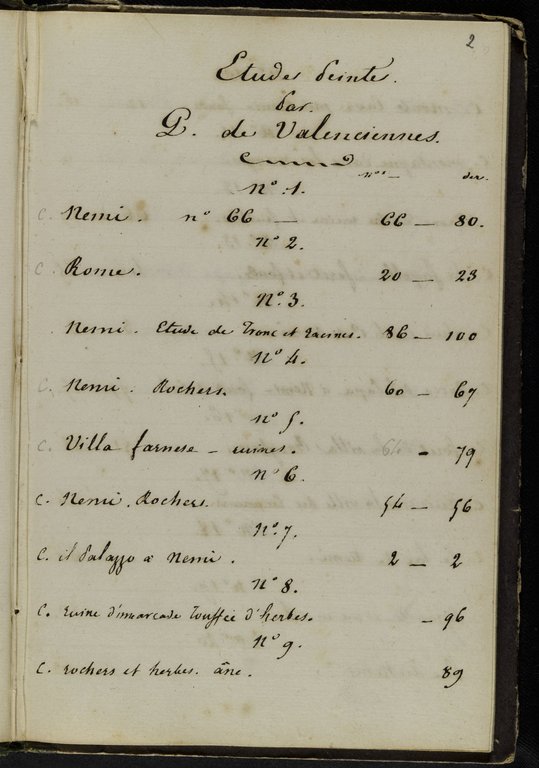 2
Etudes Peinte.
Par.
P. de Valenciennes.
nos — der.
No. 1.
C. Nemi. no 66 — 66 — 80.
No 2.
C. Rome. 20 — 23
No. 3.
Nemi. Etude de Tronc et racines. 86 — 100
No 4.
C. Nemi. Rochers. 60 — 67
No 5.
C. Villa farnese — ruines. 64 — 79
No 6.
C. Nemi. Rochers. 54 — 56
No. 7.
C. il Palazzo a Nemi. 2 — 2
No 8.
C. ruine d'une arcade touffée d'herbes. — 96
No 9.
C. rochers et herbes. âne. 89